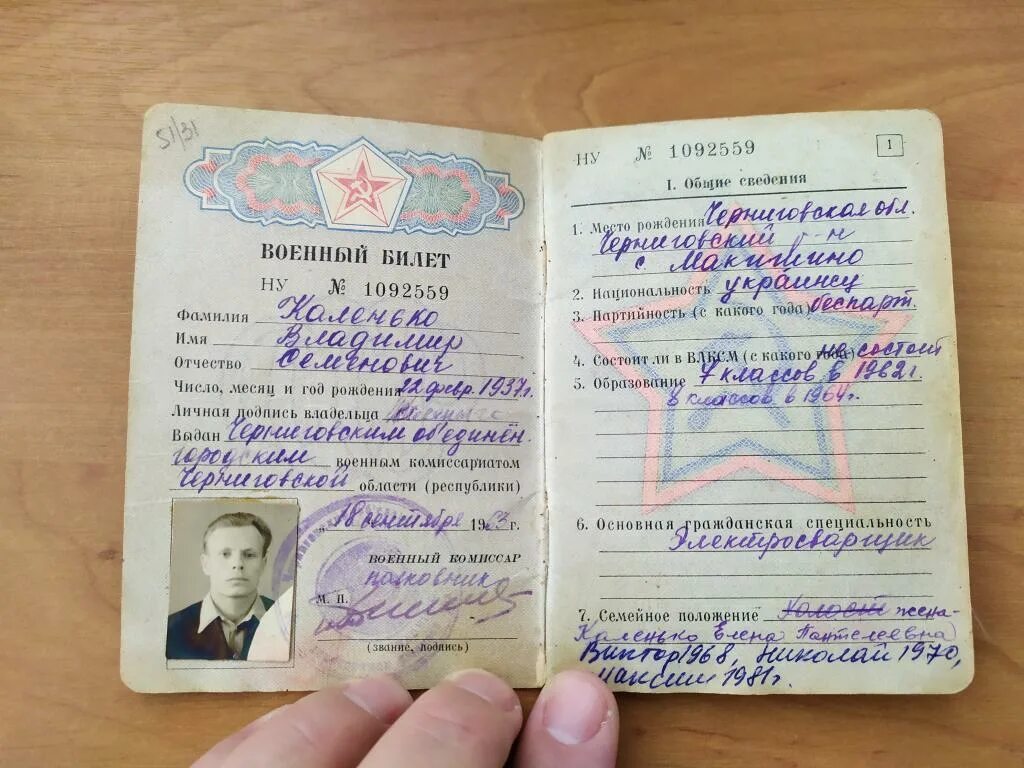 51/31
ВОЕННЫЙ БИЛЕТ
НУ № 1092559
Фамилия Каленько
Имя Владимир
Отчество Семенович
Число, месяц и год рождения 22 февр. 1937г.
Личная подпись владельца
Выдан Черниговским об'единён.
городским военным комиссариатом
Черниговской области (республики)
„18 сентября 1963 г.
ВОЕННЫЙ КОМИССАР
полковник
М. П.
(звание, подпись)
НУ № 1092559 1
I. Общие сведения
1. Место рождения Черниговская обл.
Черниговский р-н
с.
2. Национальность украинец
3. Партийность (с какого года) беспарт.
4. Состоит ли в ВЛКСМ (с какого года) не состоит
5. Образование 7 классов в 1962 г.
8 классов в 1964г.
6. Основная гражданская специальность
Электросварщик
7. Семейное положение холост жена-
Каленько Елена Пантелеевна
Виктор 1968, Николай 1970,
Максим 1981г.